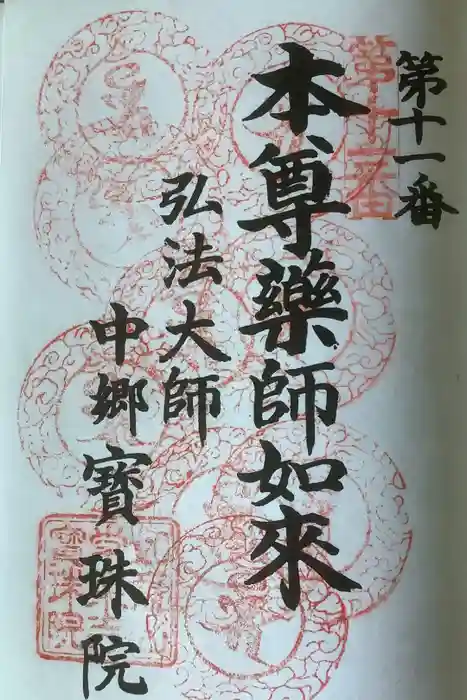 第十一番
第十一番
本尊藥師如來
弘法大師
中郷寳珠院